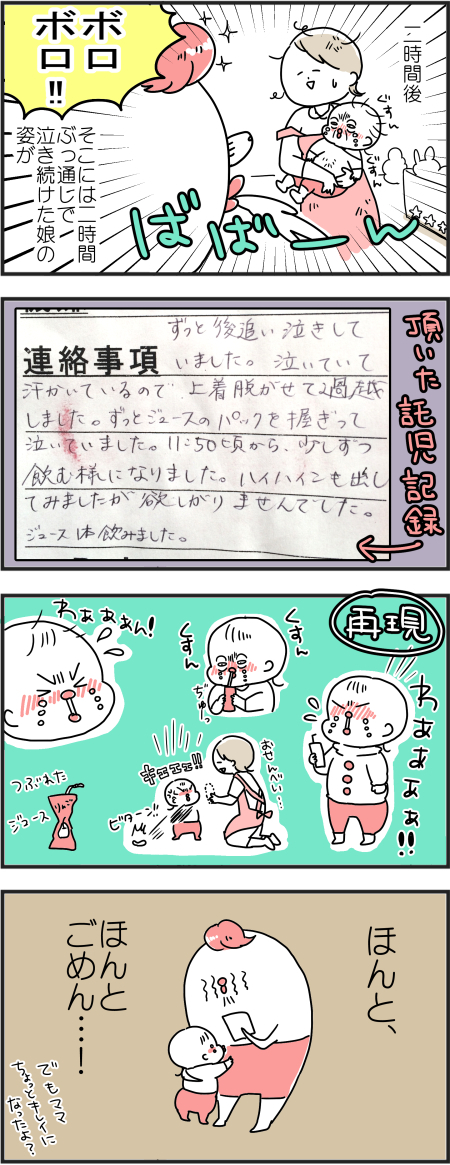 二時間後
ボロ
ボロ!!
ぐすん
ぐすん
ばばーん
そこには二時間
ぶっ通しで
泣き続けた娘の
姿が
頂いた託児記録
連絡事項
ずっと後追い泣きして
いました。泣いていて
汗かいているので、上着脱がせて
しました。ずっとジュースのパックを握ぎって
泣いていました。11:50頃から、少しずつ
飲む様になりました。ハイハインも出し
てみましたが欲しがりませんでした。
ジュース1本飲みました。
再現
わぁぁぁぁぁ!!
くすん
くすん
ぢゅーっ
わぁぁぁん!
おせんべい…
キェェェ!!
ビターン!!
つぶれた
ジュース
りんご
ほんと、
ほんと
ごめん…!
でもママ
ちょっとキレイに
なったよ?